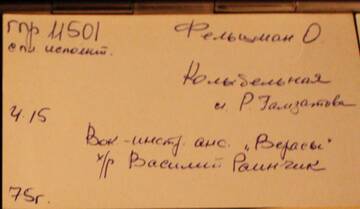 гпр 11501
Фельцман О
спи исполнит.
Колыбельная
сл. Р. Гамзатова
4.15
Вок-инстр. анс. „Верасы"
х/р Василий Раинчик
75г.